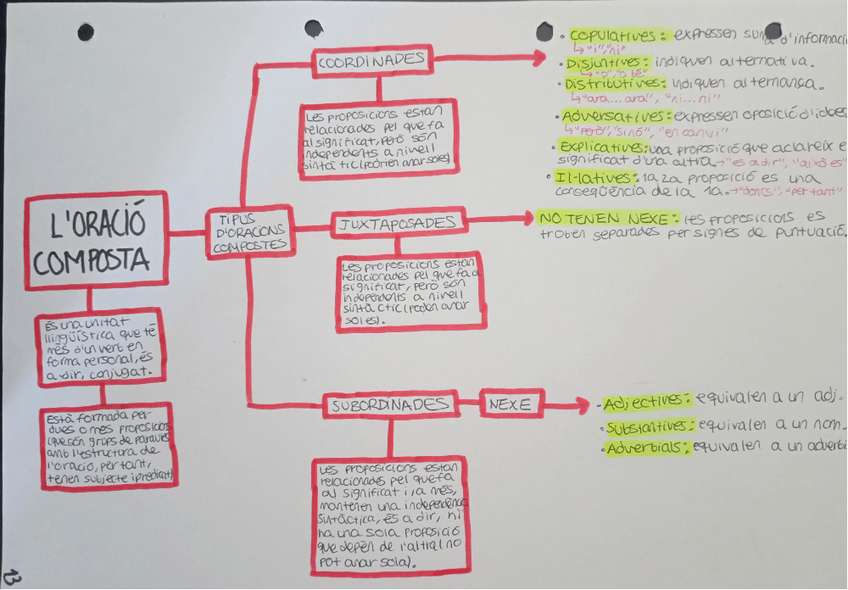 L'ORACIÓ
COMPOSTA
És una unitat
lingüística que té
més d'un verb en
forma personal, és
a dir, conjugat.
Està formada per
dues o més proposicions
(que són grups de paraules
amb l'estructura de
l'oració, per tant,
tenen subjecte i predicat)
TIPUS
D'ORACIONS
COMPOSTES
COORDINADES
Les proposicions estan
relacionades pel que fa
al significat, però són
independents a nivell
sintàctic (poden anar soles)
• Copulatives: expressen suma d'informaci
↳ "i", "ni"
• Disjuntives: indiquen alternativa.
↳ "o", "o bé"
• Distributives: indiquen alternança.
↳ "ara... ara", "ni... ni"
• Adversatives: expressen oposició d'idees
↳ "però", "sinó", "en canvi"
• Explicatives: una proposició que aclareix e
significat d'una altra → "és a dir", "això és"
• Il·latives: la 2a proposició és una
conseqüència de la 1a. → "doncs", "per tant"
JUXTAPOSADES
Les proposicions estan
relacionades pel que fa a
significat, però són
independents a nivell
sintàctic (poden anar
soles).
NO TENEN NEXE: les proposicions es
troben separades per signes de puntuació.
SUBORDINADES
NEXE
Les proposicions estan
relacionades pel que fa
al significat i, a més,
mantenen una independència
sintàctica, és a dir, hi
ha una sola proposició
que depèn de l'altra (no
pot anar sola).
• Adjectives: equivalen a un adj.
• Substantives: equivalen a un nom.
• Adverbials: equivalen a un adverbi
13